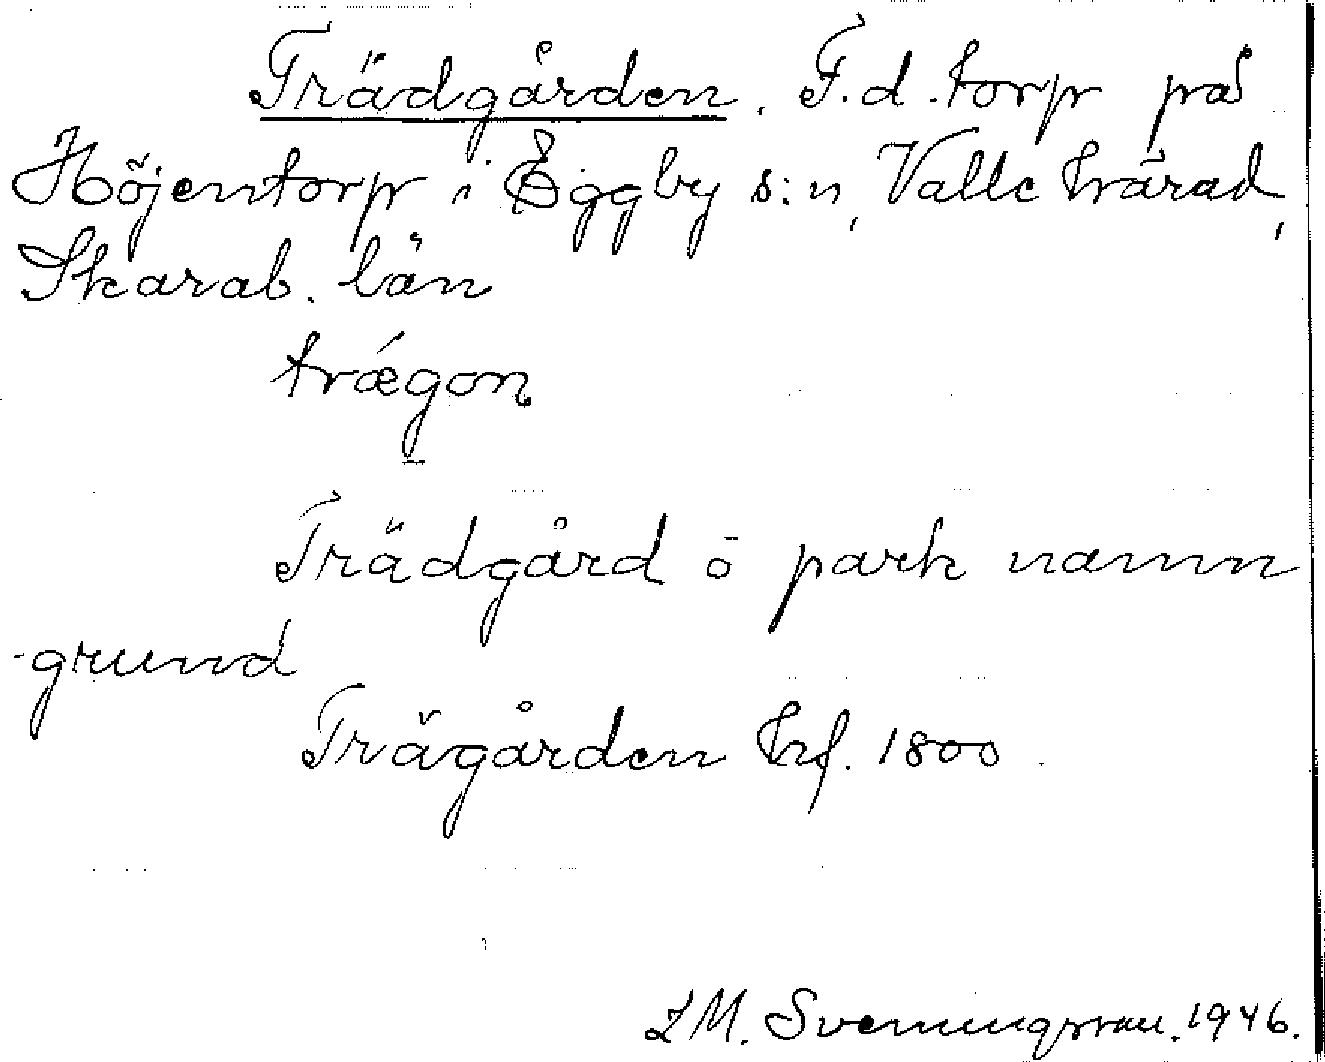 Trädgården. F.d. torp på
Höjentorp i Eggby s:n, Valle härad,
Skarab. län
trǽgon
Trädgård o park namn
grund
Trägården hf. 1800.
Sveningsson. 1946.